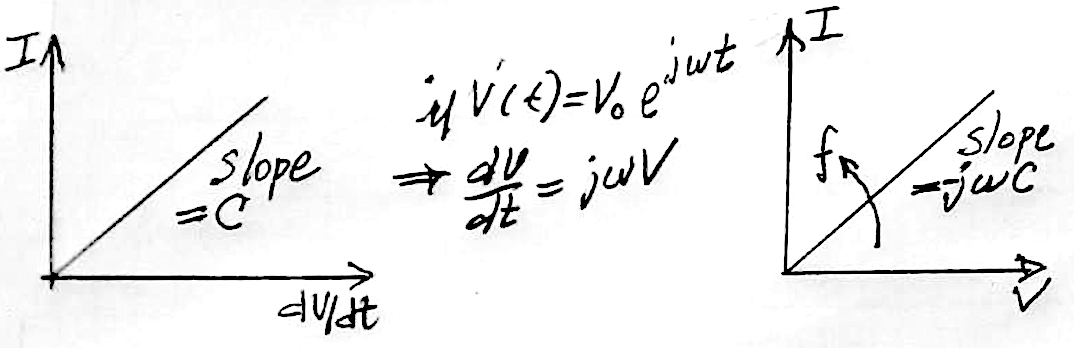 I
slope
= C
dV/dt
if V(t) = V₀ e^{jωt}
⇒ dV/dt = jωV
I
f
slope
= jωC
V